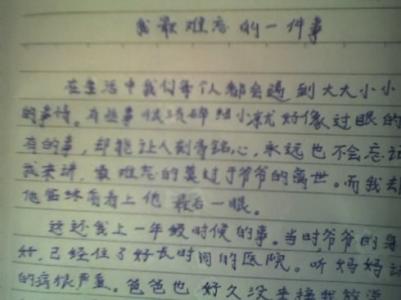 我最难忘的一件事
在生活中我们每个人都会遇到大大小小
的事情。有些事很琐碎细小就好像过眼的
有的事，却能让人刻骨铭心，永远也不会忘记
我来讲，最难忘的莫过于爷爷的离世。而我却
他临终看着上他最后一眼。
这还我上一年级时候的事。当时爷爷的身
好，已经住了好长时间的医院。听妈妈说
的病很严重。爸爸也好久没来接我放学